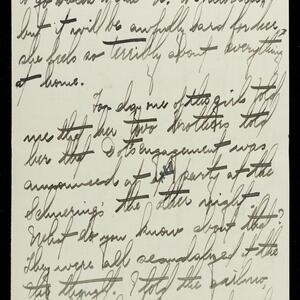 but it will be awfully hard for her
she feels so terribly about everything
at home.
To-day one of the girls told
me that her two brothers told
her that D's engagement was
announced at a party at the
Schmering's the other night.
What do you know about that?
They were all scandalized at the
thought. I told the